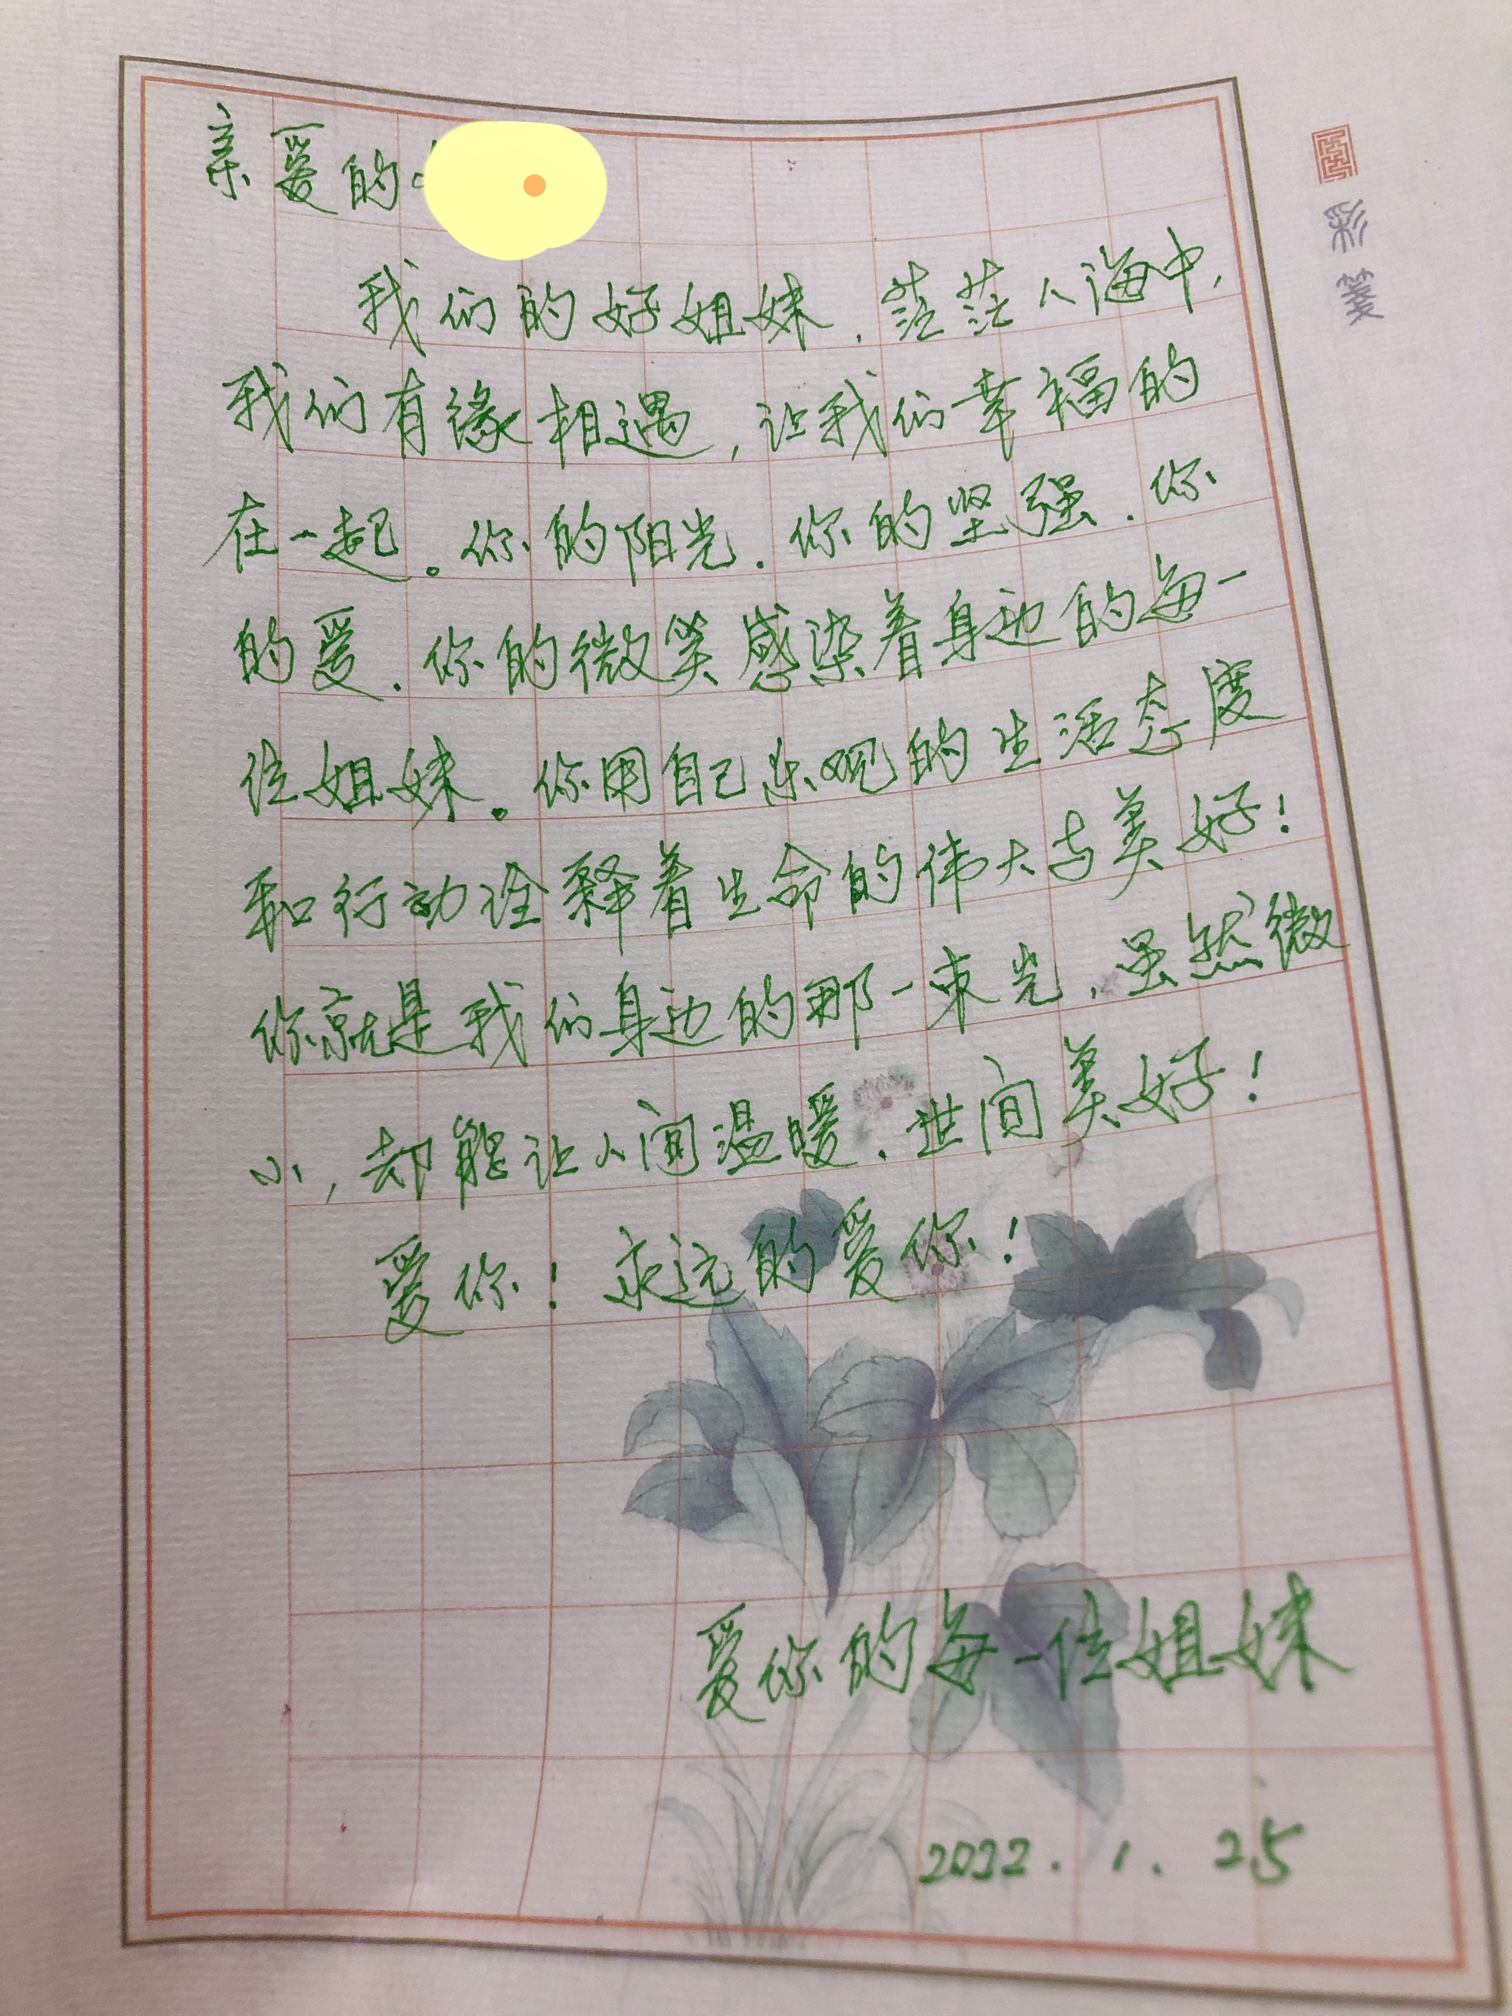 亲爱的
我们的好姐妹，茫茫人海中，
我们有缘相遇，让我们幸福的
在一起。你的阳光，你的坚强，你
的爱，你的微笑感染着身边的每一
位姐妹。你用自己乐观的生活态度
和行动诠释着生命的伟大与美好！
你就是我们身边的那一束光，虽然微
小，却能让人间温暖，世间美好！
爱你！永远的爱你！
爱你的每一位姐妹
2022.1.25
彩笺